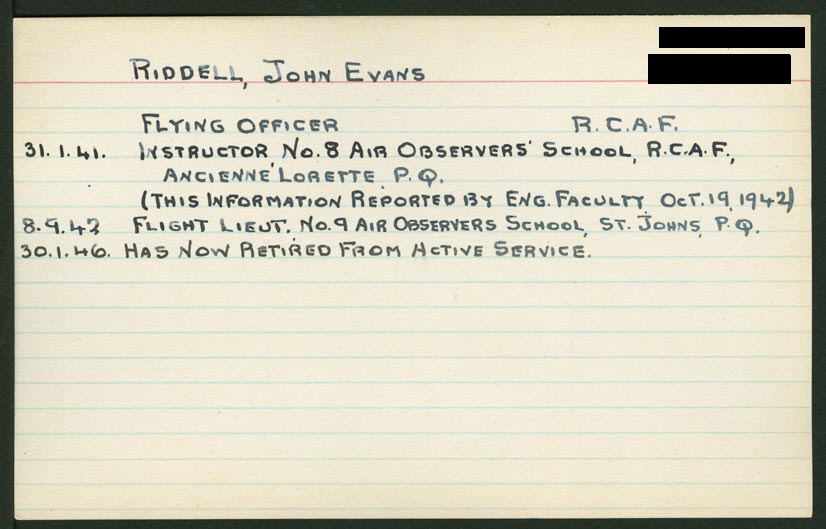 RIDDELL, JOHN EVANS
FLYING OFFICER R.C.A.F.
31.1.41. INSTRUCTOR NO. 8 AIR OBSERVERS' SCHOOL, R.C.A.F.,
ANCIENNE LORETTE, P.Q.
(THIS INFORMATION REPORTED BY ENG. FACULTY OCT. 19, 1942)
8.9.43 FLIGHT LIEUT. NO. 9 AIR OBSERVERS SCHOOL, ST. JOHNS, P.Q.
30.1.46. HAS NOW RETIRED FROM ACTIVE SERVICE.